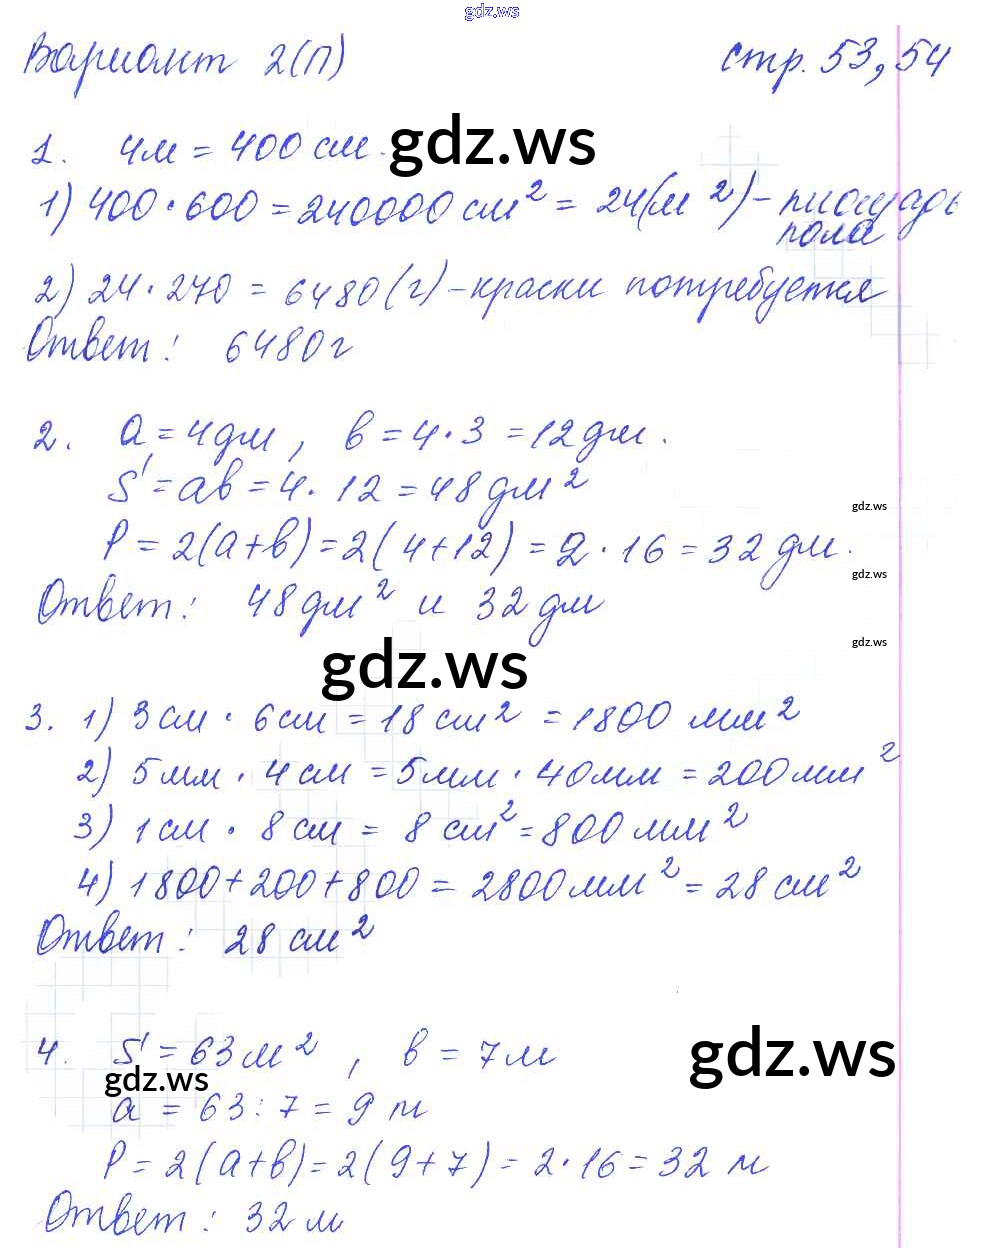 gdz.ws
Вариант 2(П) стр. 53, 54
1. 4м = 400 см. gdz.ws
1) 400 · 600 = 240000 см² = 24(м²) - площадь
пола
2) 24 · 270 = 6480 (г) - краски потребуется
Ответ: 6480г
2. a = 4дм, в = 4 · 3 = 12дм.
S = ав = 4 · 12 = 48 дм²
gdz.ws
P = 2(a+в) = 2( 4+12) = 2 · 16 = 32 дм.
gdz.ws
Ответ: 48дм² и 32 дм
gdz.ws
gdz.ws
3. 1) 3см · 6см = 18 см² = 1800 мм²
2) 5мм · 4см = 5мм · 40мм = 200мм²
3) 1см · 8см = 8 см² = 800мм²
4) 1800+200+800 = 2800мм² = 28 см²
Ответ: 28 см²
4. S = 63м², в = 7м
gdz.ws
gdz.ws
a = 63 : 7 = 9 м
P = 2(a+в) = 2(9+7) = 2 · 16 = 32 м
Ответ: 32 м